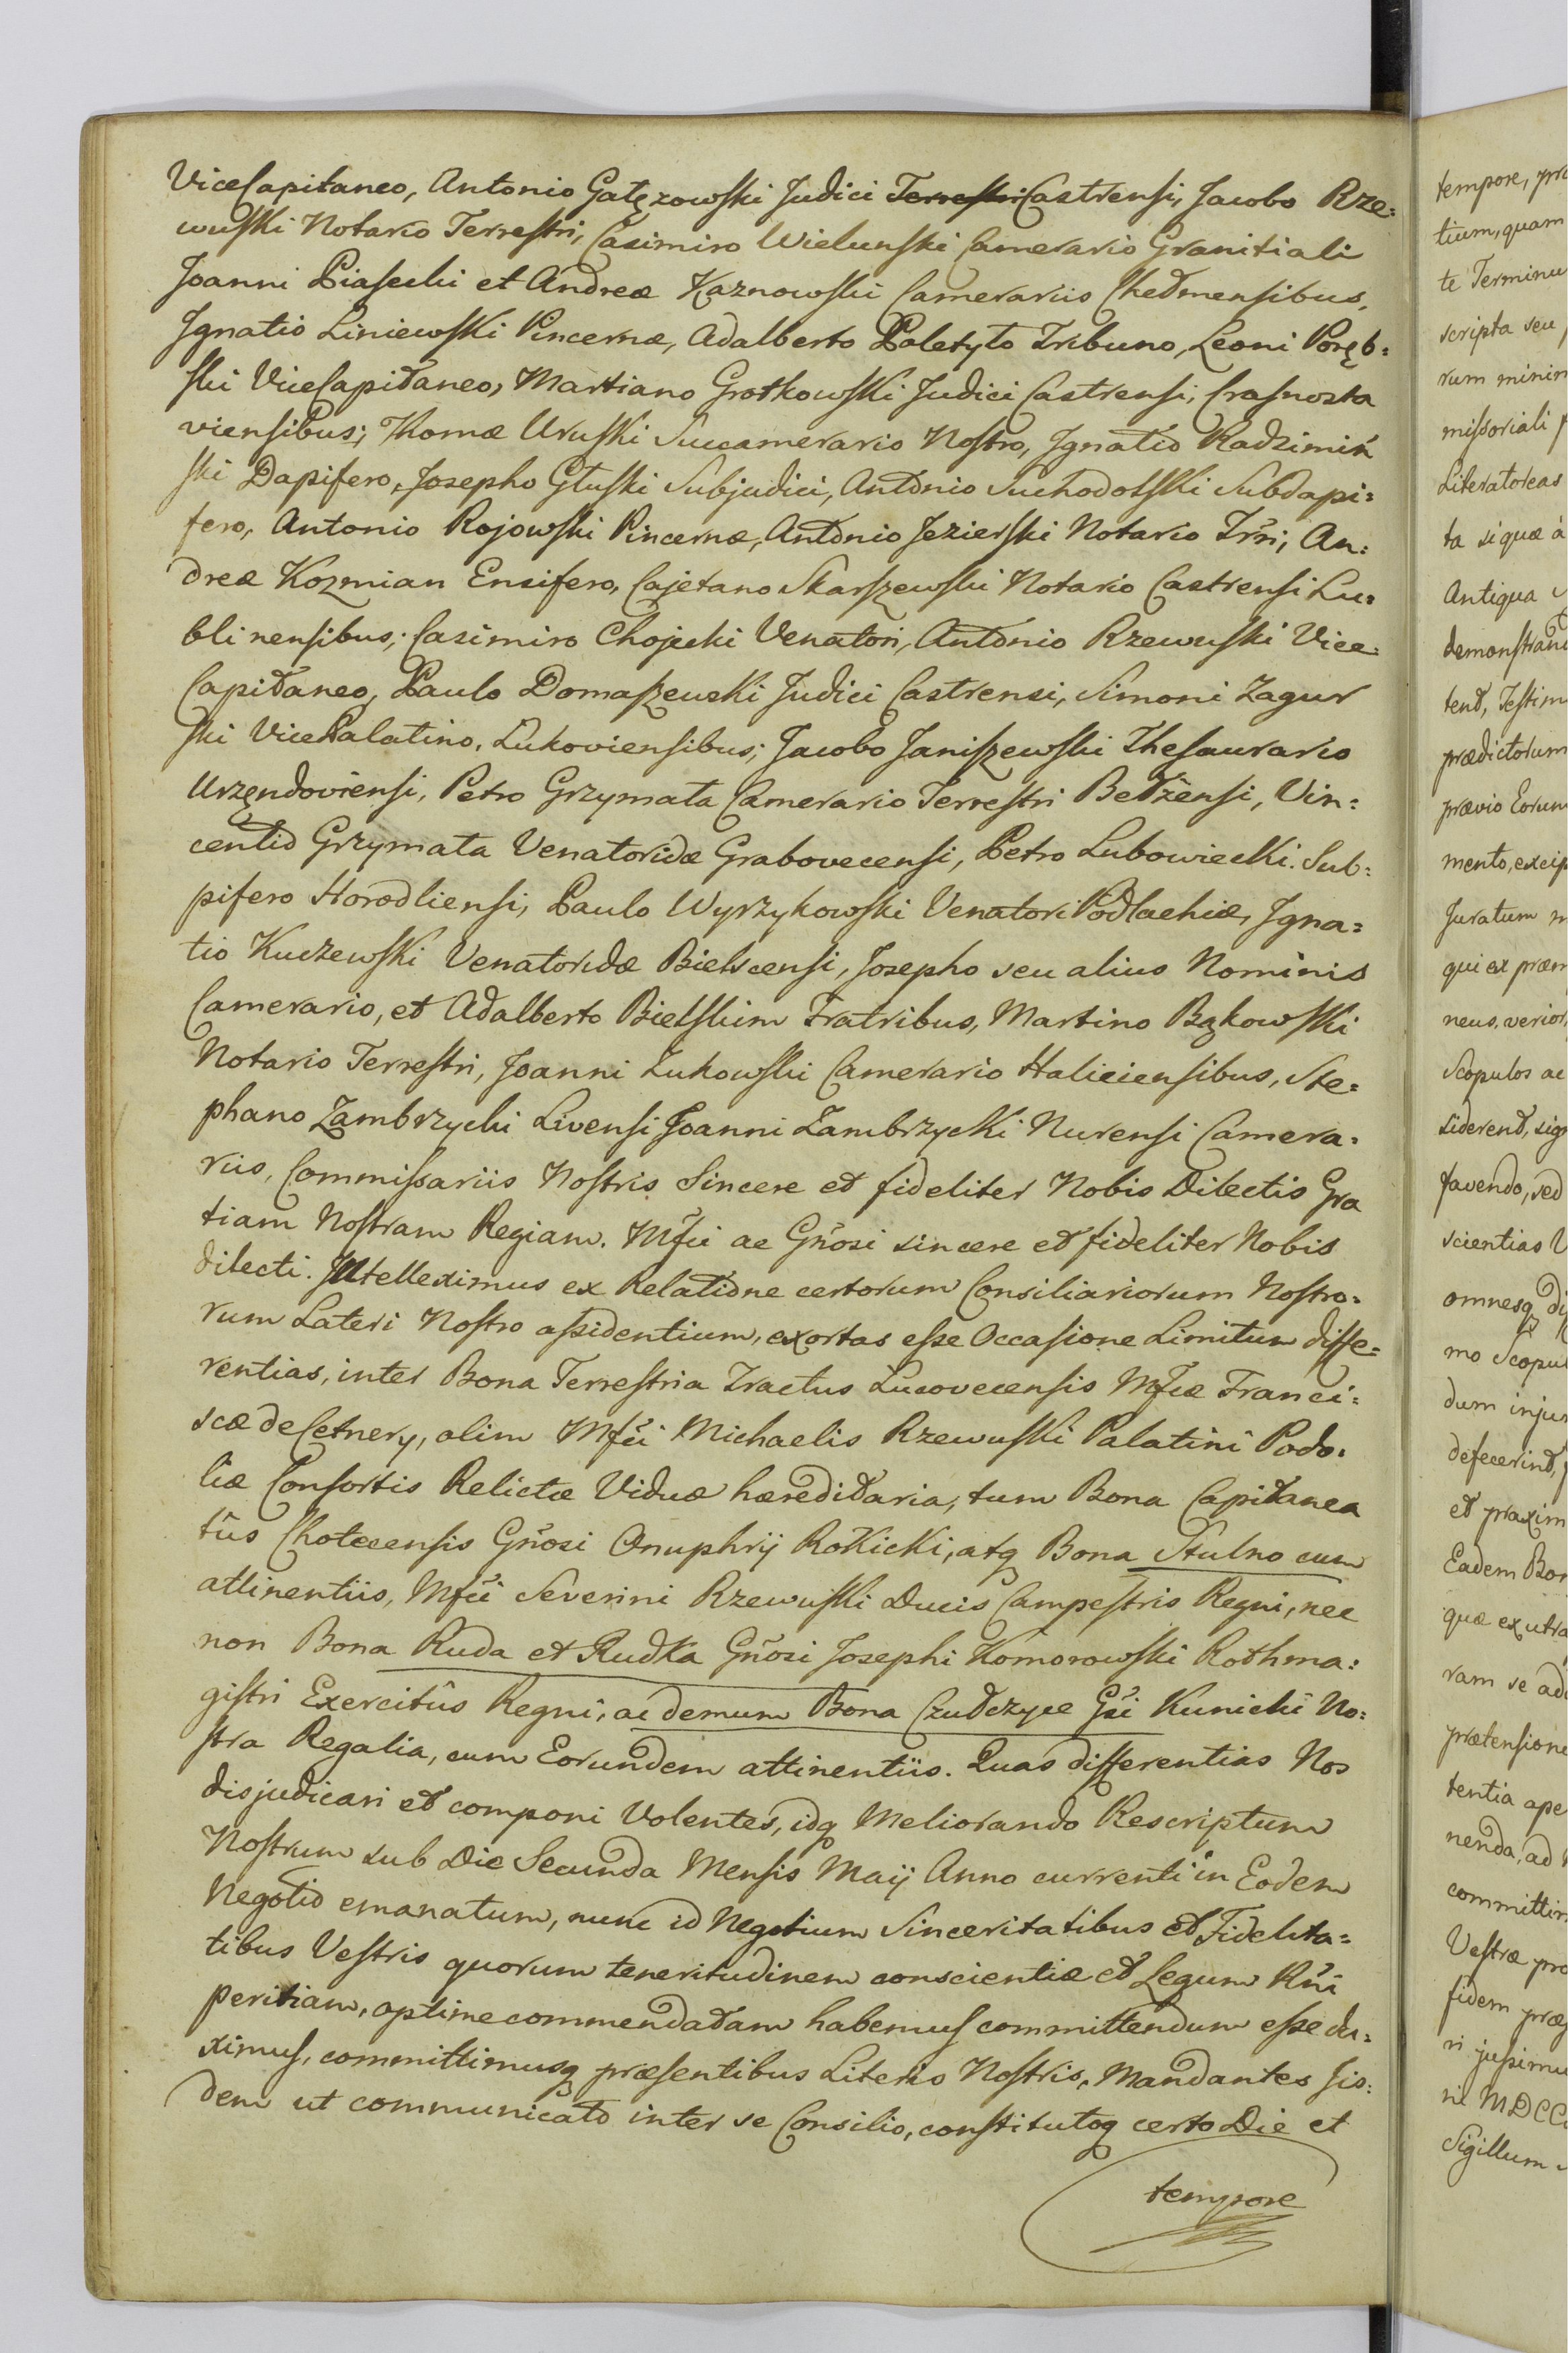 ViceCapitaneo, Antonio Gałęzowski Judici Terrestri Castrensi, Jacobo Rze=
wuski Notario Terrestri, Casimiro Wielunski Camerario Granitiali
Joanni Piasecki et Andreæ Kaznowski Camerariis Chełmensibus,
Ignatio Liniewski Pincernæ, Adalberto Poletyło Tribuno, Leoni Poręb=
ski ViceCapitaneo, Martiano Grotkowski Judici Castrensi, Crasnosta
viensibus; Thomæ Uruski Succamerario Nostro, Ignatio Radzimiń
ski Dapifero, Josepho Głuski Subjudici, Antonio Suchodolski Subdapi=
fero, Antonio Rojowski Pincernæ, Antonio Jezierski Notario Trri, An=
dreæ Kozmian Ensifero, Cajetano Skarszewski Notario Castrensi Lu=
blinensibus; Casimiro Chojecki Venatori, Antonio Rzewuski Vice=
Capitaneo, Paulo Domaszewski Judici Castrensi, Simoni Zagur
ski VicePalatino, Lukoviensibus; Jacobo Janiszewski Thesaurario
Urzędoviensi, Petro Grzymała Camerario Terrestri Bełżensi, Vin=
centio Grzymała Venatoridæ Grabovecensi, Petro Lubowiecki Sub=
pifero Horodliensi, Paulo Wyrzykowski Venatori Podlachiæ, Igna=
tio Kuczewski Venatoridæ Bielscensi, Josepho seu alius Nominis
Camerario, et Adalberto Bielskim Fratribus, Martino Bąkowski
Notario Terrestri, Joanni Łukowski Camerario Haliciensibus, Ste=
phano Zambrzycki Livensi Joanni Zambrzycki Nurensi Camera=
riis, Commissariis Nostris Sincere et fideliter Nobis Dilectis Gra
tiam Nostram Regiam. Mfci ac Gnosi sincere et fideliter Nobis
dilecti. Intelleximus ex Relatione certorum Consiliariorum Nostro=
rum Lateri Nostro assidentium, exortas esse Occasione Limitum diffe=
rentias, inter Bona Terrestria Tractus Lucovecensis Mfcæ Franci=
scæ de Cetnery, olim Mfci Michaelis Rzewuski Palatini Podo=
liæ Consortis Relictæ Viduæ hæreditaria, tum Bona Capitanea
tûs Chotecensis Gnosi Onuphrij Rokicki, atq Bona Stulno cum
attinentiis, Mfci Severini Rzewuski Ducis Campestris Regni, nec
non Bona Ruda et Rudka Gnosi Josephi Komorowski Rothma=
gistri Exercitûs Regni, ac demum Bona Czułczyce Gsi Kunicki No=
stra Regalia, cum Eorundem attinentiis. Quas differentias Nos
disjudicari et componi Volentes, idq Meliorando Rescriptum
Nostrum sub Die Secunda Mensis Maij Anno currenti in Eodem
Negotio emanatum, nunc id Negotium Sinceritatibus et Fidelita=
tibus Vestris quorum teneritudinem conscientiæ et Legum Rni
peritiam, optime commendatam habemus committendum esse du=
ximus, committimusq præsentibus Literis Nostris, Mandantes iis=
dem ut communicato inter se Consilio, constitutoq certo Die et
tempore
tempore,
tium, quam
te Terminu
scripta seu
rum minim
missoriali
Literatoreas
ta siquæ à
Antiqua
demonstrand
tend, Testim
prædictorum
prævio Eorum
mento, excip
Juratum
qui ex præm
neus, verior
Scopulos ac
siderend, sig
favendo, sed
scientias
omnesq
mo Scopul
dum injun
defecerint,
et praxim
Eadem Bon
quæ ex utra
ram se
prætensione
tentia ape
nenda, ad
committim
Vestræ pro
fidem præ
ri jussimus
ni MDCC
Sigillum